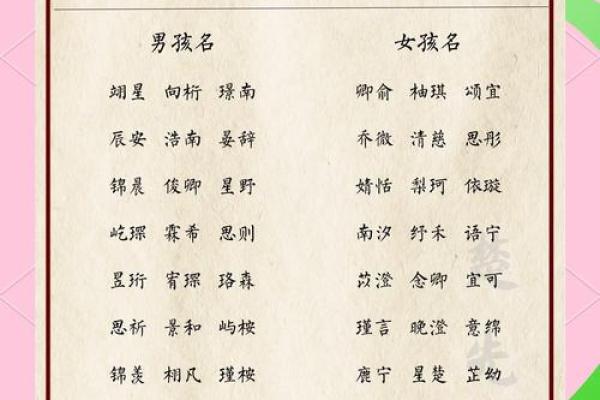 男孩名 女孩名
翊星 向桁 璟南 卿俞 柚琪 颂宜
辰安 浩南 晏辞 乔微 清慈 思彤
锦晨 俊卿 星野 婧恬 梨珂 依璇
屹琛 霖希 思则 南汐 纾禾 语宁
昱珩 宥琛 珞森 苡澄 念卿 宜可
思祈 景和 屿桉 瑾言 晚澄 意绵
锦羡 栩凡 瑾桉 鹿宁 星楚 芷幼